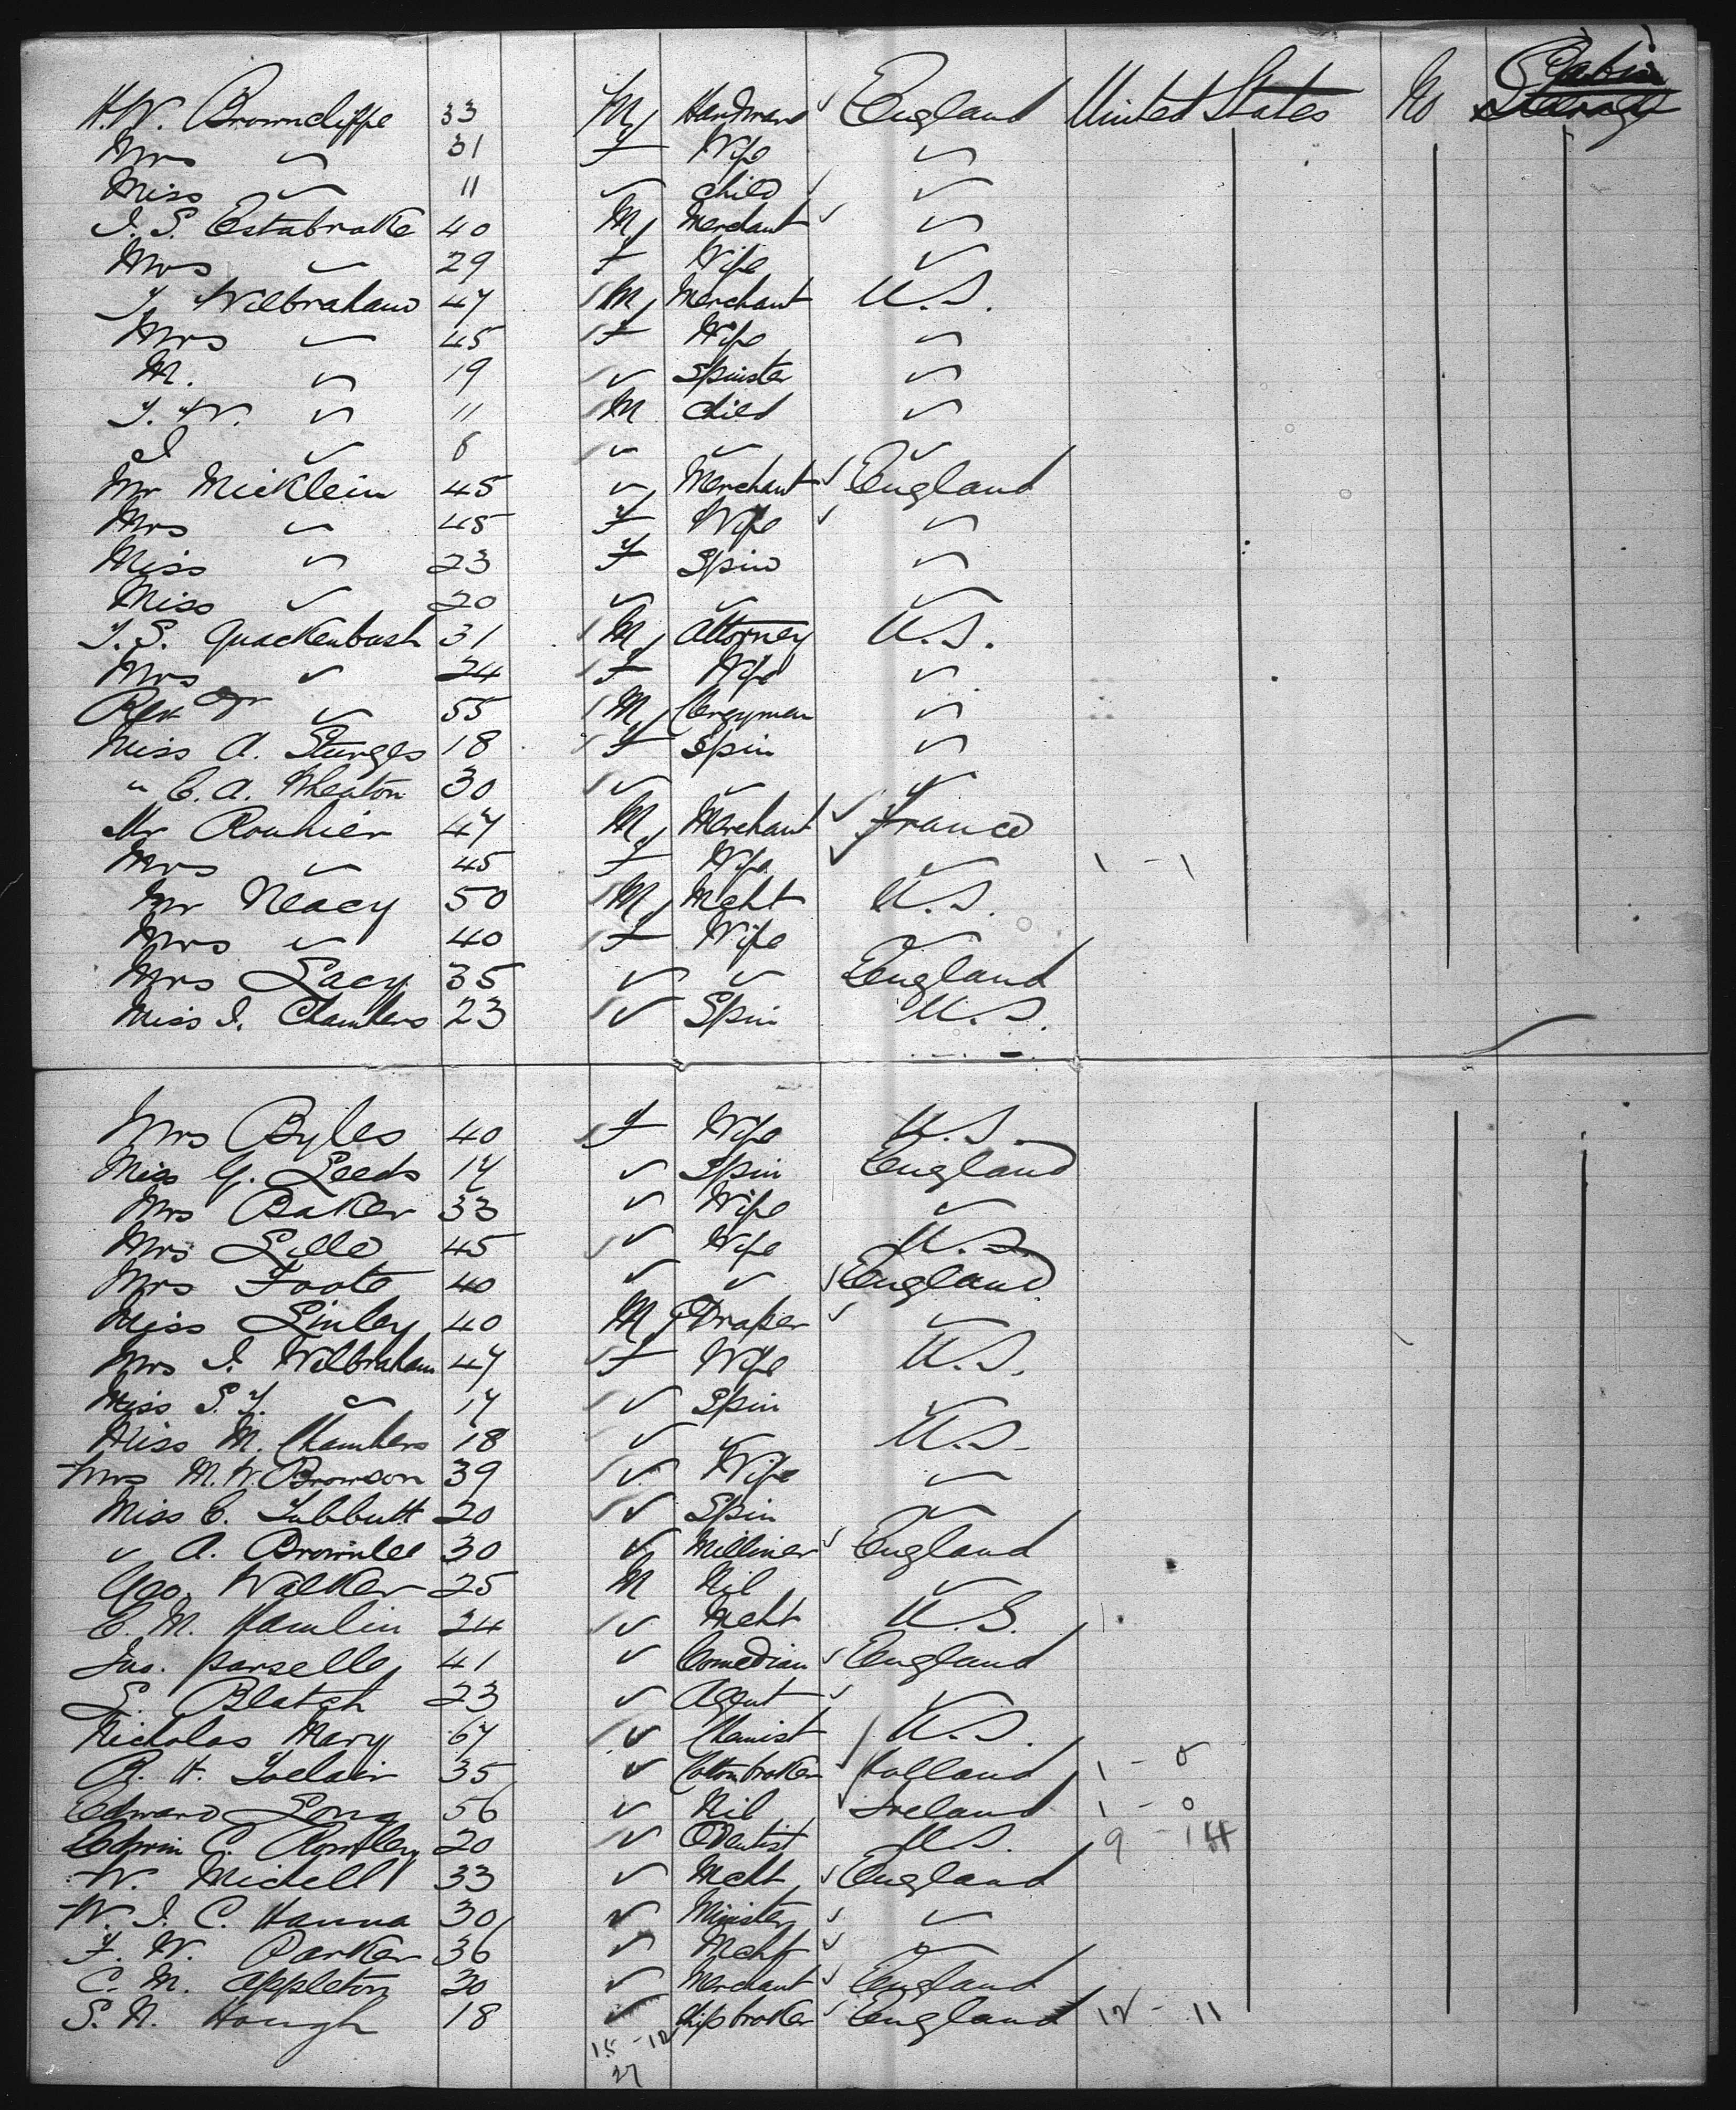 Cabin
H.W. Browncliffe 33 M Hardware England United States No Steerage
Mrs " 31 F Wife "
Miss " 11 " child "
J. S. Estabrooke 40 M Merchant "
Mrs " 29 F Wife "
J. Wilbraham 47 M Merchant U.S.
Mrs " 45 F Wife "
M. " 19 " Spinster "
J. W. " 11 M child "
J " 8 " " "
Mr Micklein 45 " Merchant England
Mrs " 45 F Wife "
Miss " 23 F Spin "
Miss " 20 " " "
J. S. Quackenbush 31 M Attorney U.S.
Mrs " 24 F Wife "
Rev Dr " 55 M Clergyman "
Miss A. Sturges 18 F Spin "
" E. A. Wheaton 30 " " "
Mr Rouhier 47 M Merchant France
Mrs " 45 F Wife " 1 - 1
Mr Neacy 50 M Mcht U.S.
Mrs " 40 F Wife "
Mrs Lacy 35 " " England
Miss J. Chambers 23 " Spin U.S.
Mrs Byles 40 F Wife U.S.
Miss G. Leeds 17 " Spin England
Mrs Baker 33 " Wife "
Mrs 45 " Wife U.S.
Mrs Foote 40 " " England
Miss Linley 40 M Draper "
Mrs J. Wilbraham 47 F Wife U.S.
Miss S. J. " 17 " Spin "
Miss M. Chambers 18 " " U.S.
Mrs M. W. Bronson 39 " Wife "
Miss C. Tubbutt 20 " Spin "
" A. Brownlee 30 " Milliner England
Geo. Walker 25 M Nil "
C. M. Hamlin 24 " Mcht U.S.
Jno. Parselle 41 " Comedian England
S. Blatch 23 " Agent "
Nicholas Mary 67 " Chemist U.S.
R. H. 35 " Cottonbroker Holland 1 - 0
Edward Long 56 " Nil Ireland 1 - 0
Edwin C. 20 " Dentist U.S. 9 - 14
W. Michell 33 " Mcht England
W. J. C. Hanna 30 " Minister "
F. W. Parker 36 " Mcht "
C. M. Appleton 30 " Merchant England
S. N. Hough 18 " Shipbroker England 12 - 11
15 - 12
27